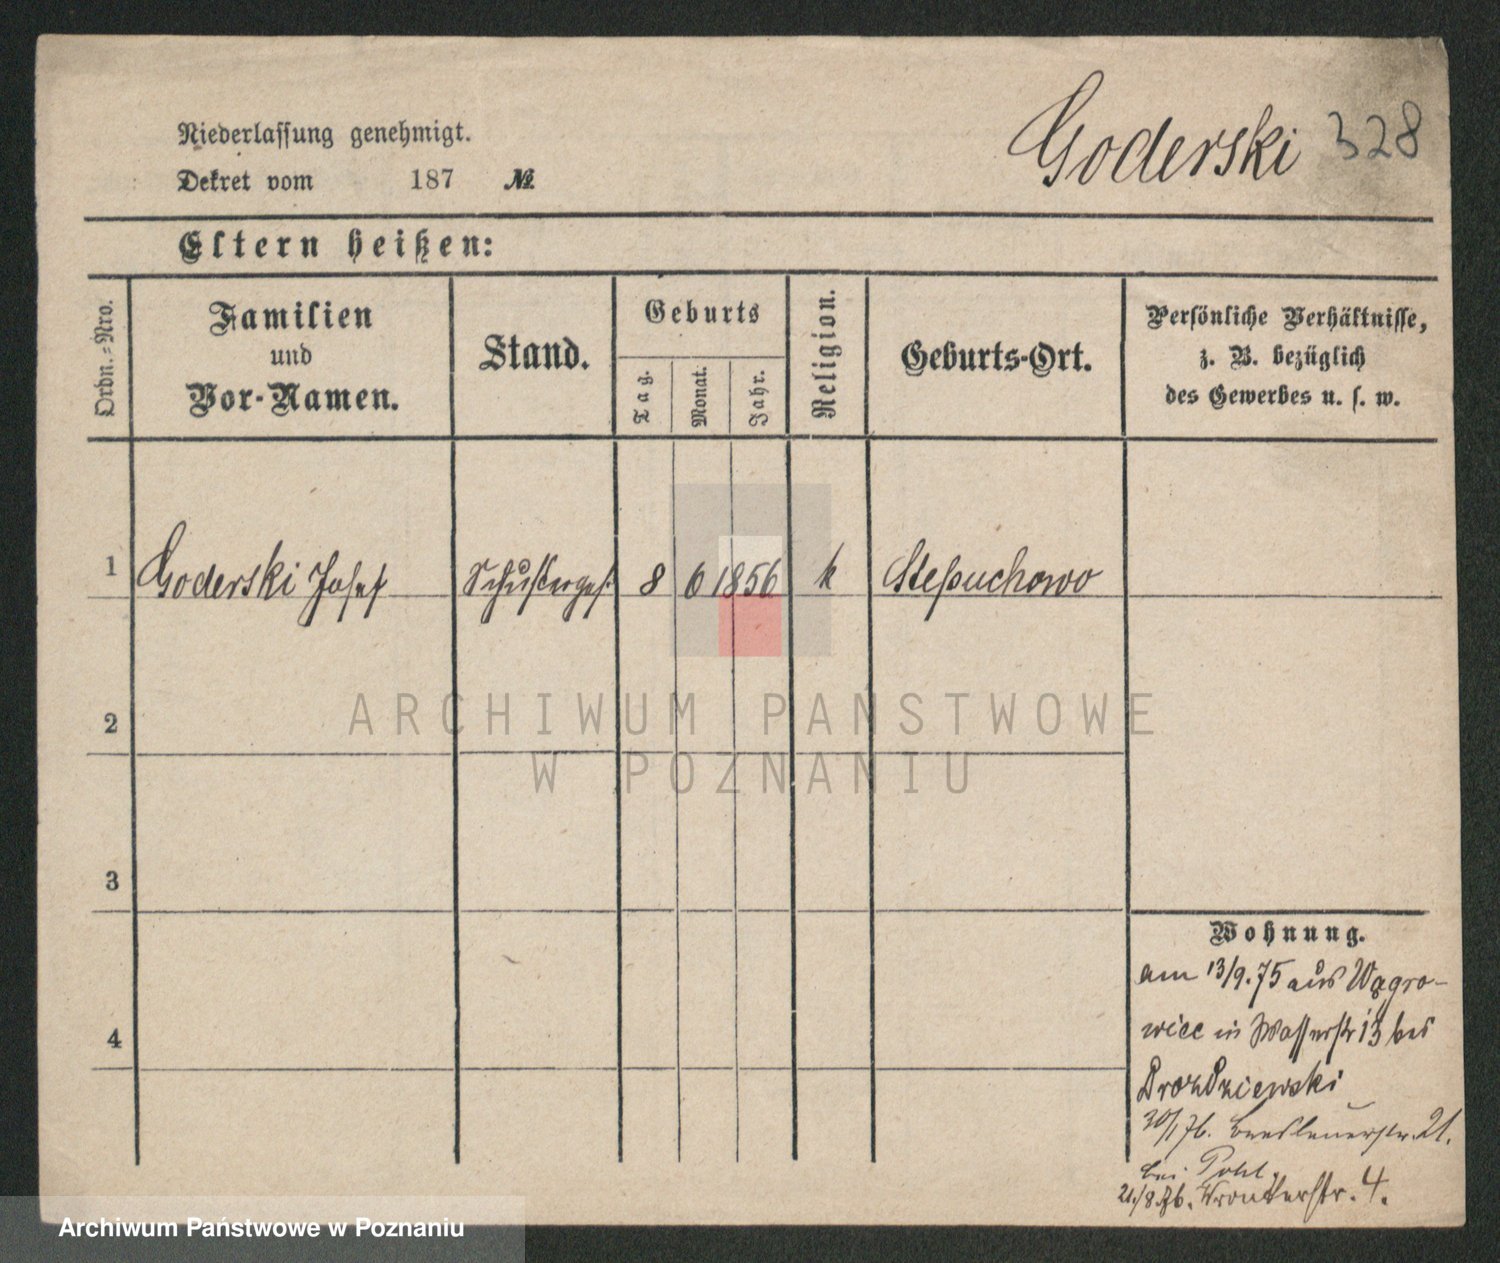 Goderski 328
Niederlassung genehmigt.
Dekret vom 187 №
Eltern heißen:
Ordn.=Nro.
Familien
und
Vor-Namen.
Stand.
Geburts
Tag.
Monat.
Jahr.
Religion.
Geburts-Ort.
Persönliche Verhältnisse,
z. B. bezüglich
des Gewerbes u. s. w.
1 Goderski Josef Schusterges. 8 6 1856 k Stepuchowo
2
3
4
Wohnung.
am 13/9. 75 aus Wągro-
wiec in Wasserstr 13 bei
Drozdziewski
30/1 76. Breslauerstr. 21.
bei Pohl.
21/8 76. Wronkerstr. 4.
ARCHIWUM PAŃSTWOWE
W POZNANIU
Archiwum Państwowe w Poznaniu